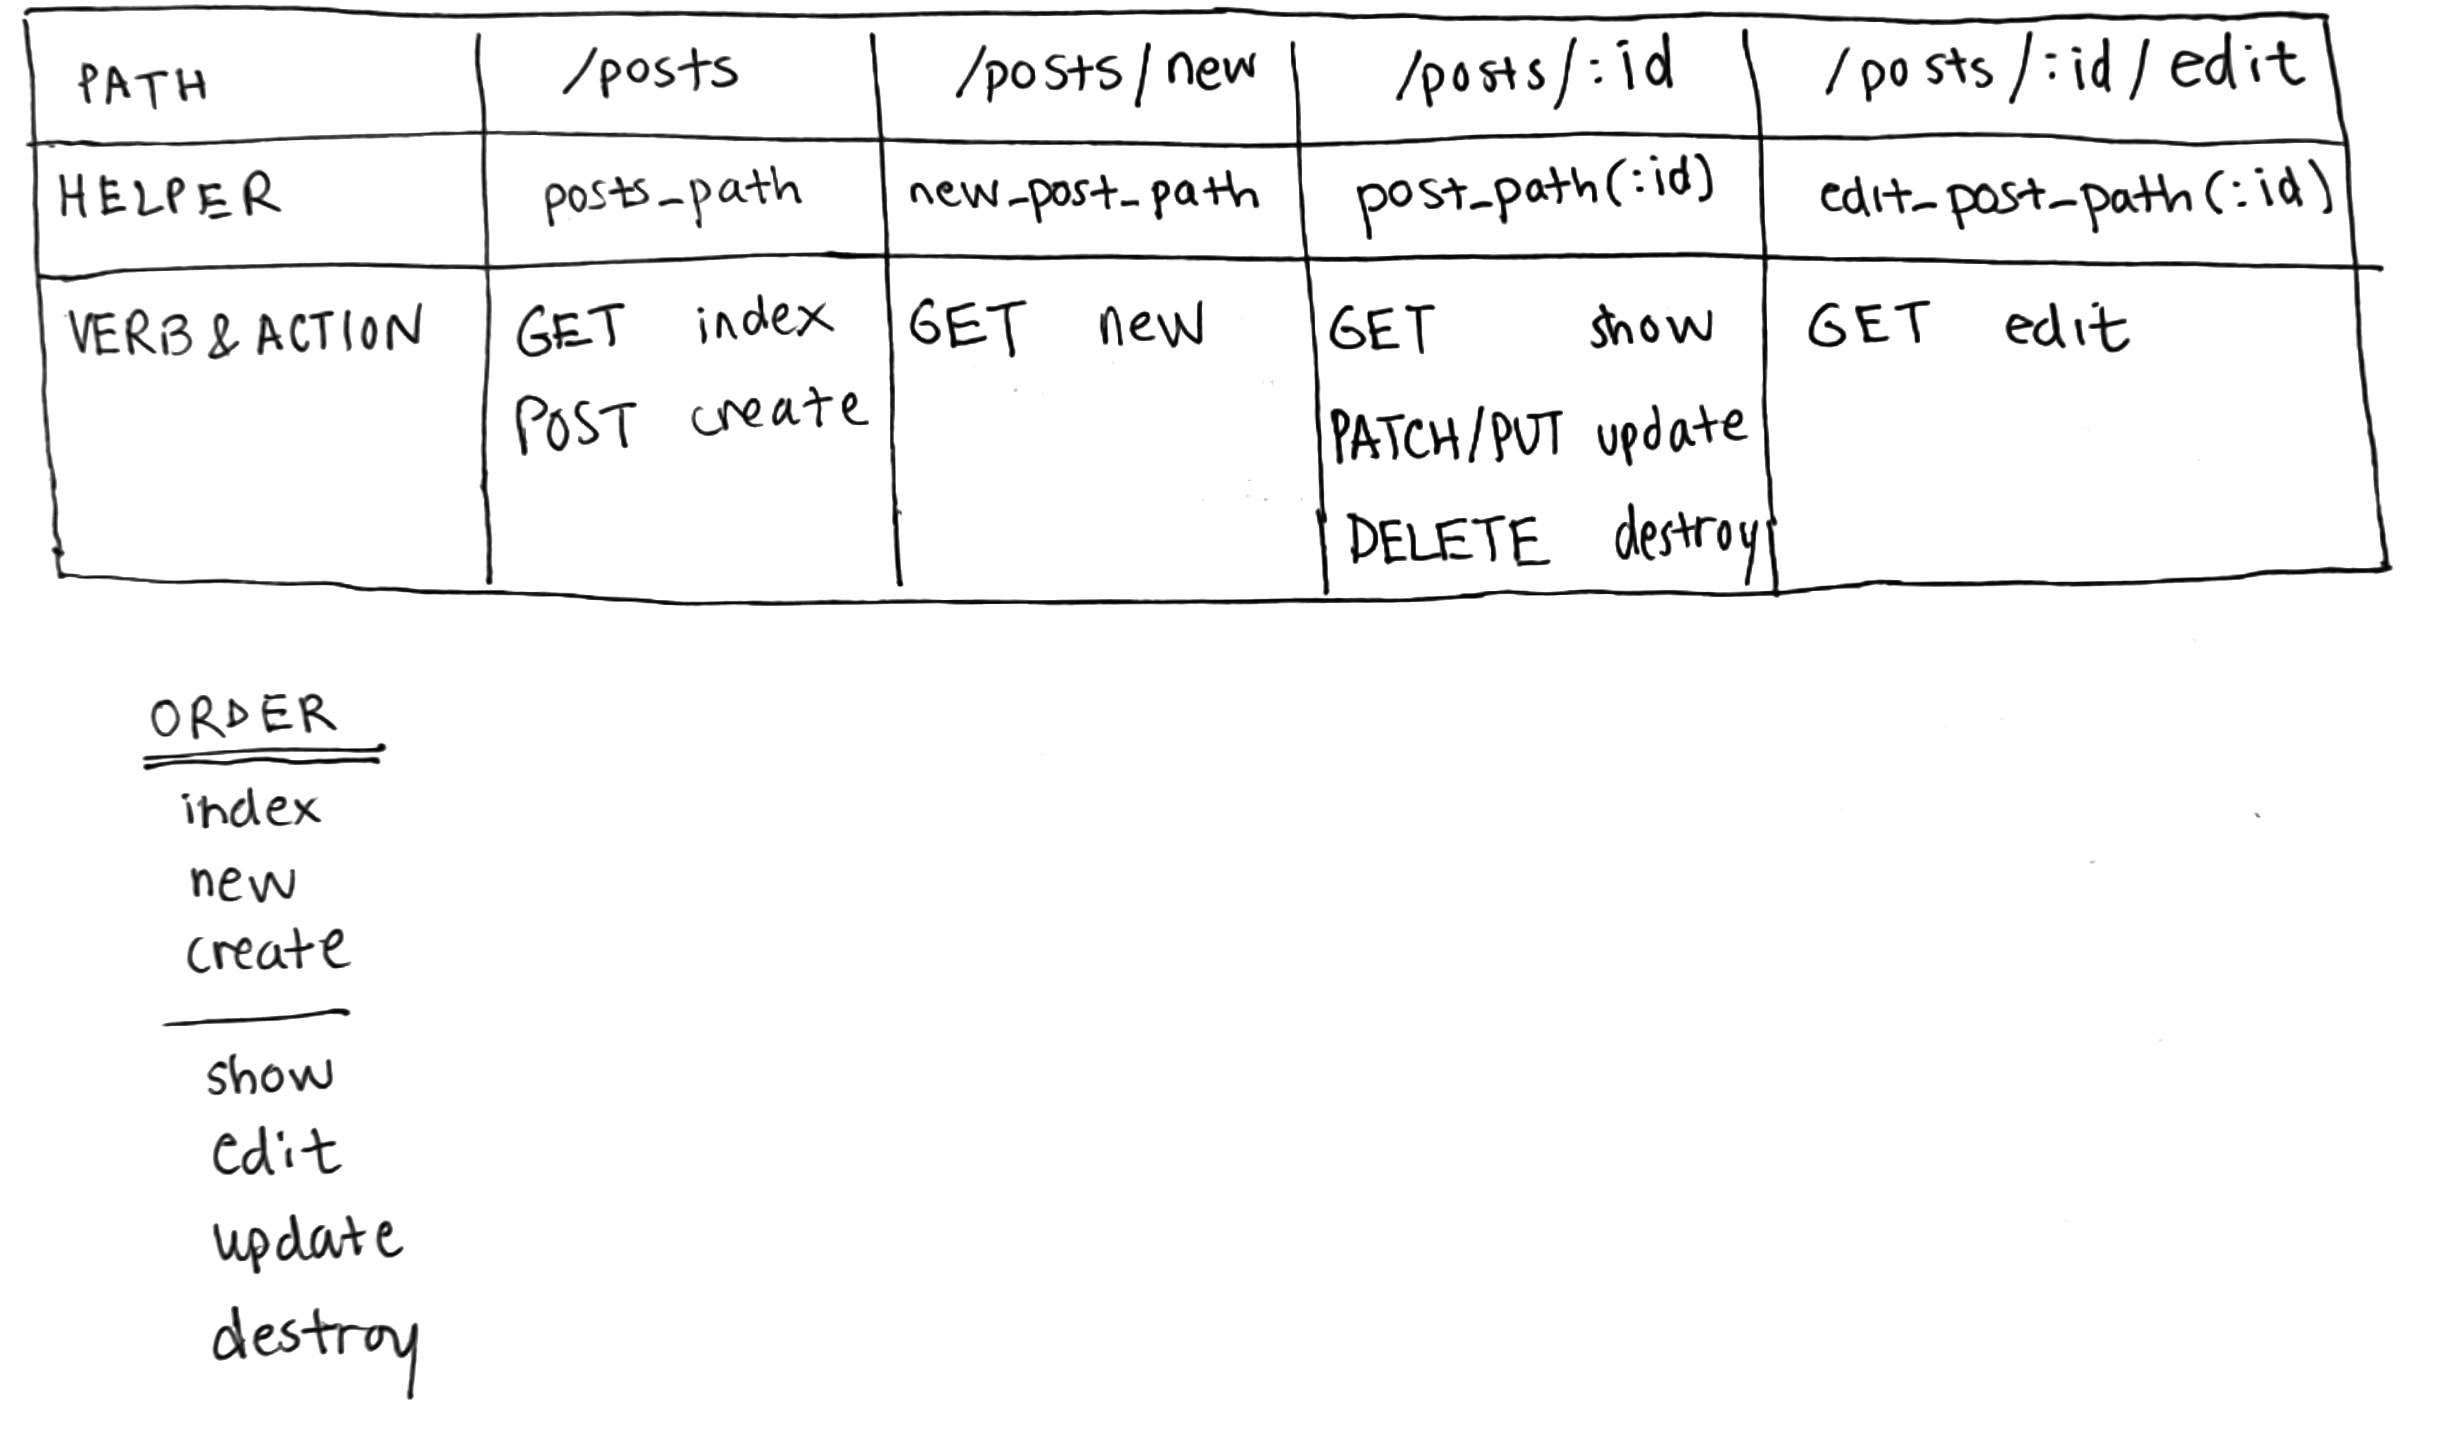 PATH /posts /posts/new /posts/:id /posts/:id/edit
HELPER posts_path new_post_path post_path(:id) edit_post_path(:id)
VERB & ACTION GET index GET new GET show GET edit
POST create PATCH/PUT update
DELETE destroy
ORDER
index
new
create
show
edit
update
destroy